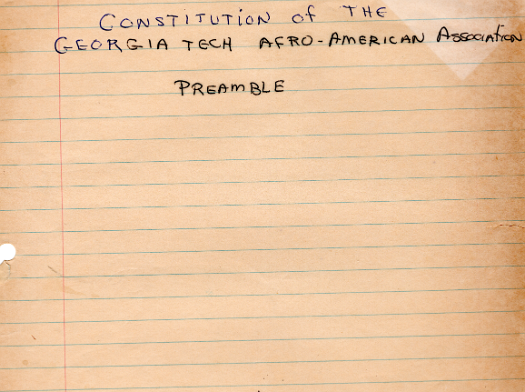 CONSTITUTION of THE
GEORGIA TECH AFRO-AMERICAN ASSOCIATION
PREAMBLE